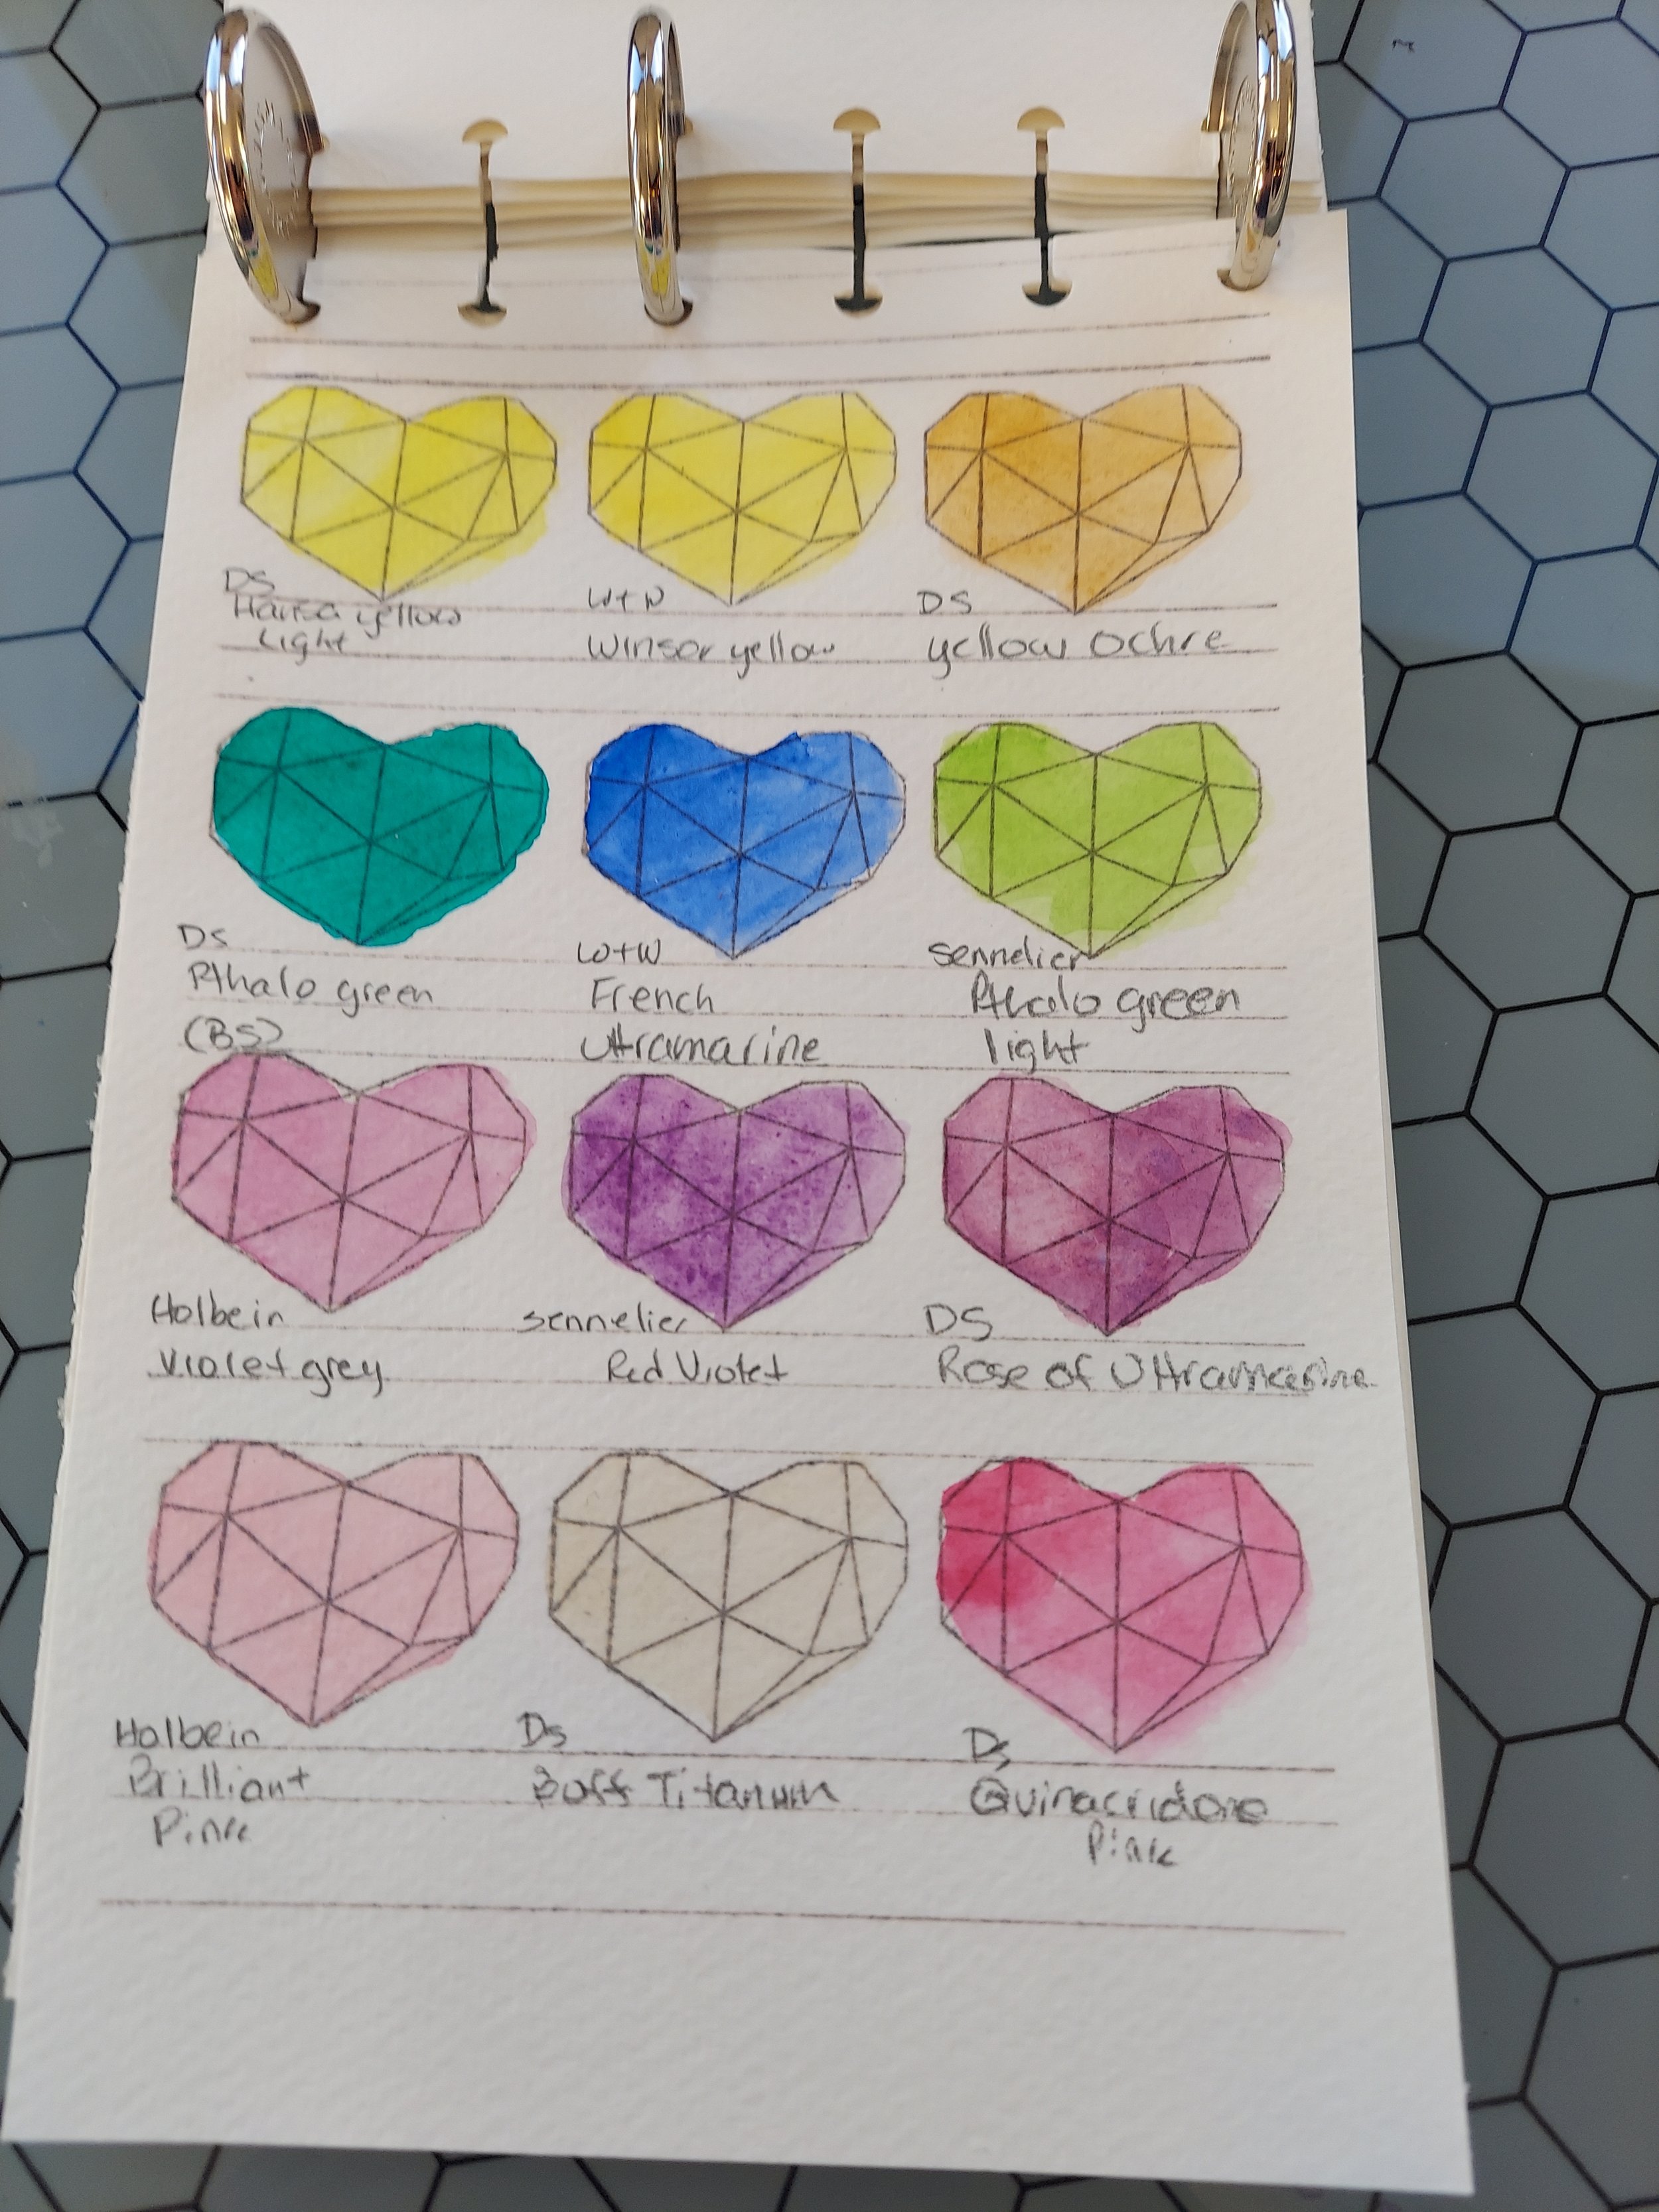 DS
Hansa yellow
Light
W+N
Winsor yellow
DS
yellow ochre
DS
Pthalo green
(BS)
W+W
French
Ultramarine
Sennelier
Pthalo green
light
Holbein
Violet grey
Sennelier
Red Violet
DS
Rose of Ultramarine
Holbein
Brilliant
Pink
DS
Buff Titanium
DS
Quinacridone
Pink